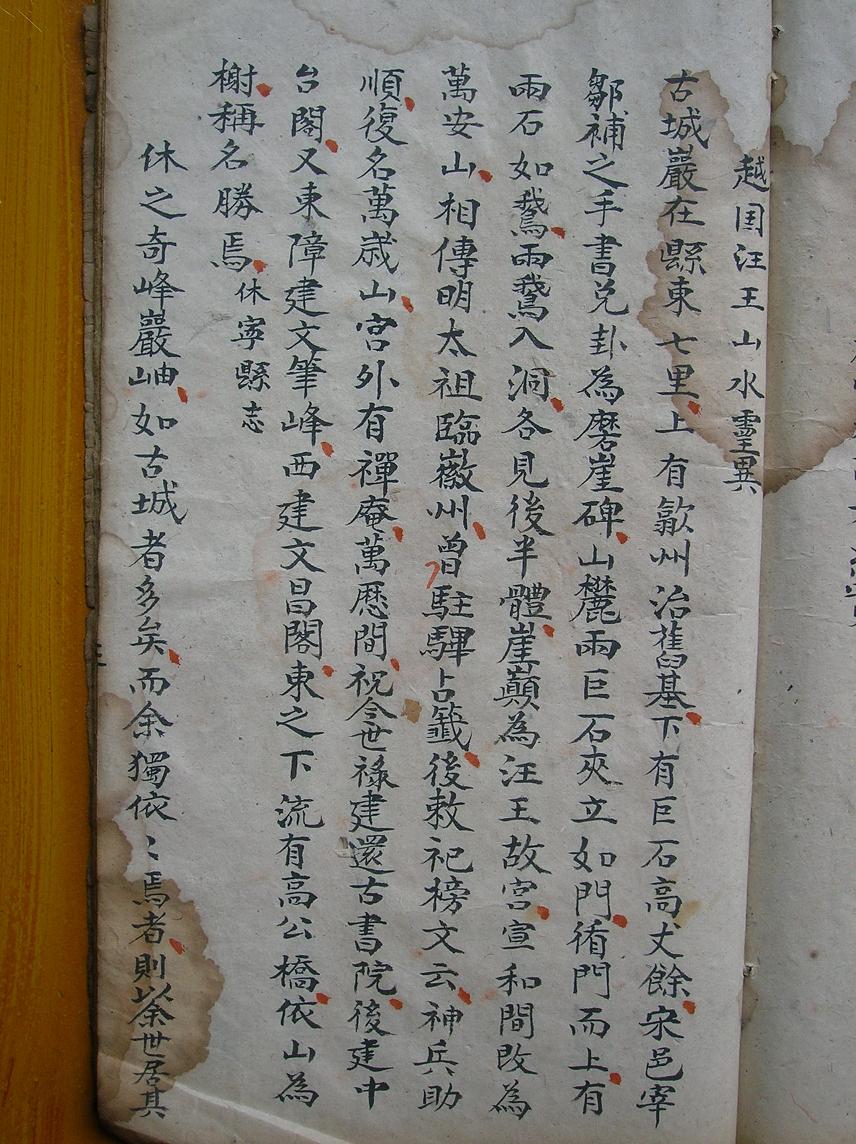 越国汪王山水靈異
古城巖在縣東七里上有歙州治舊基下有巨石高丈餘宋邑宰
鄒補之手書兑卦為磨崖碑山麓兩巨石夾立如門循門而上有
兩石如鵞兩鵞入洞各見後半體崖巔為汪王故宮宣和間改為
萬安山相傳明太祖臨徽州曾駐驆占籤後敕祀榜文云神兵助
順復名萬歲山宮外有禪庵萬厯間祝令世禄建還古書院後建中
台閣又東障建文筆峰西建文昌閣東之下流有高公橋依山為
榭稱名勝焉休寧縣志
休之奇峰巖岫如古城者多矣而余獨依〻焉者則以余世居其